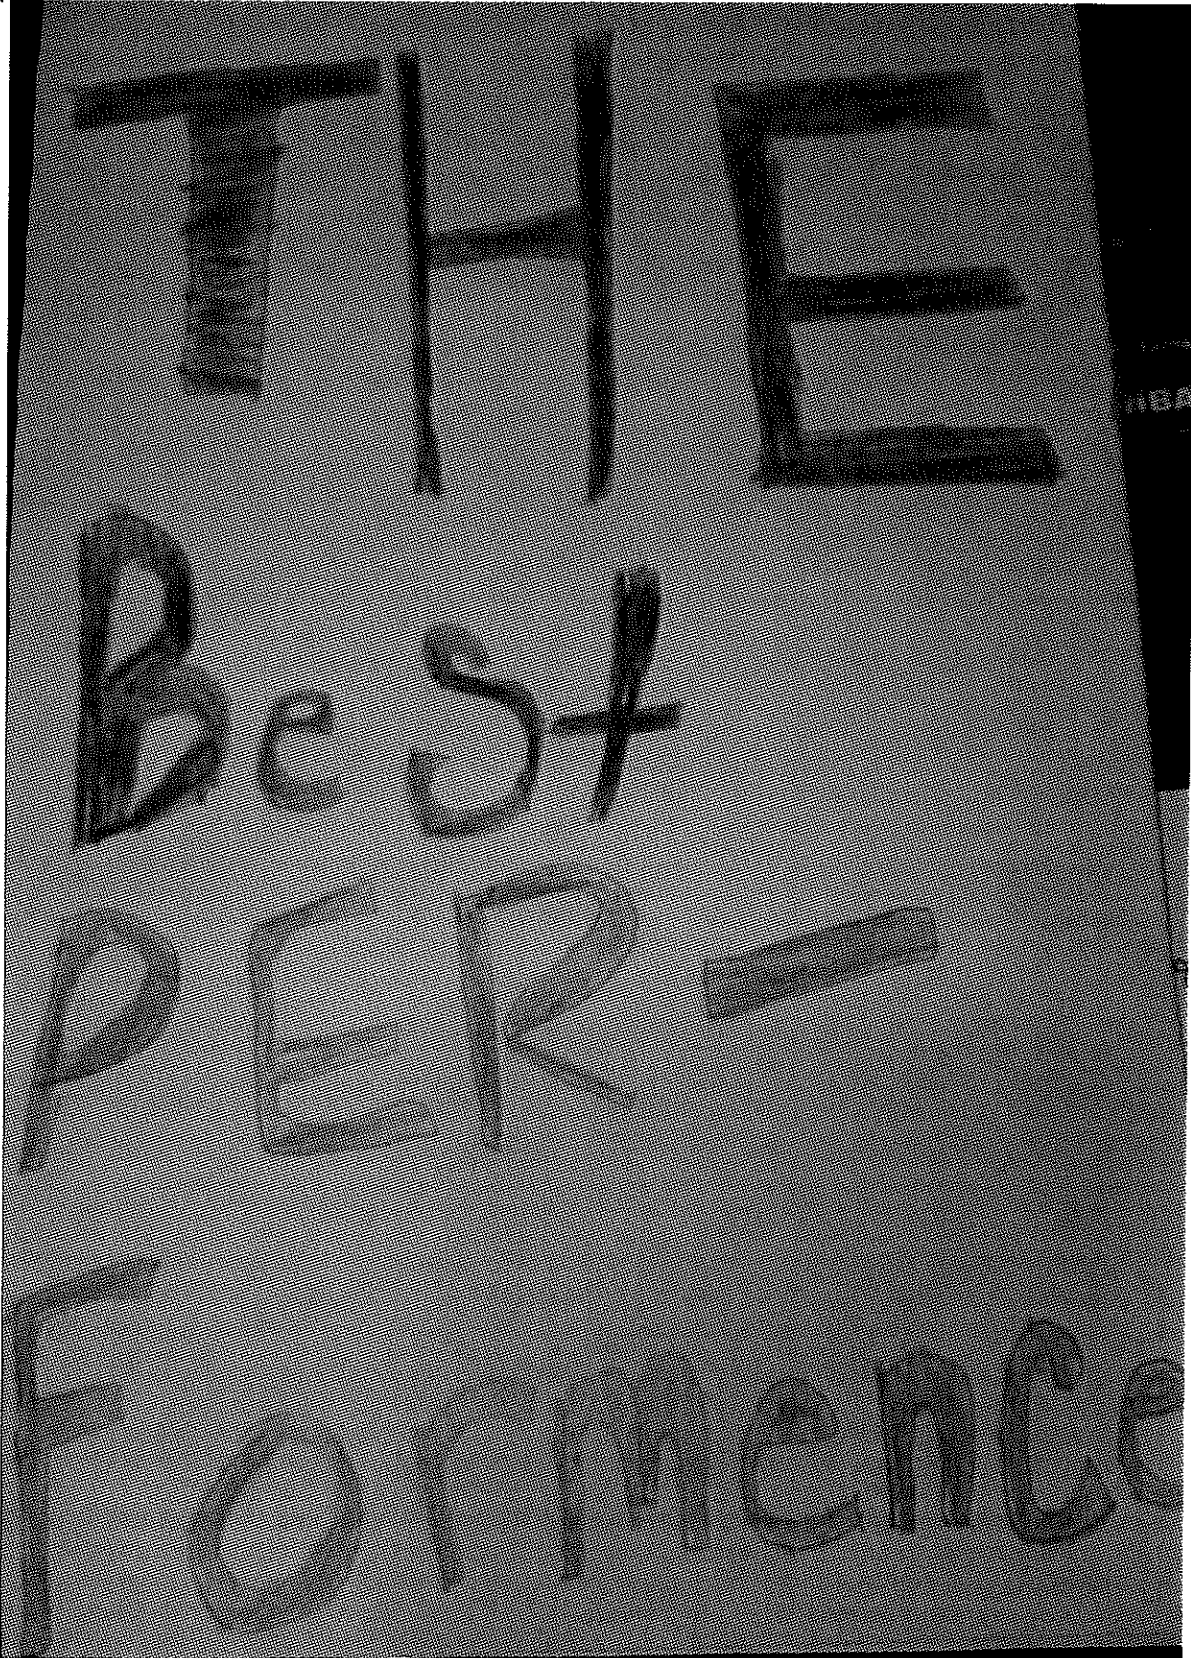 THE
BeSt
PER-
Formence